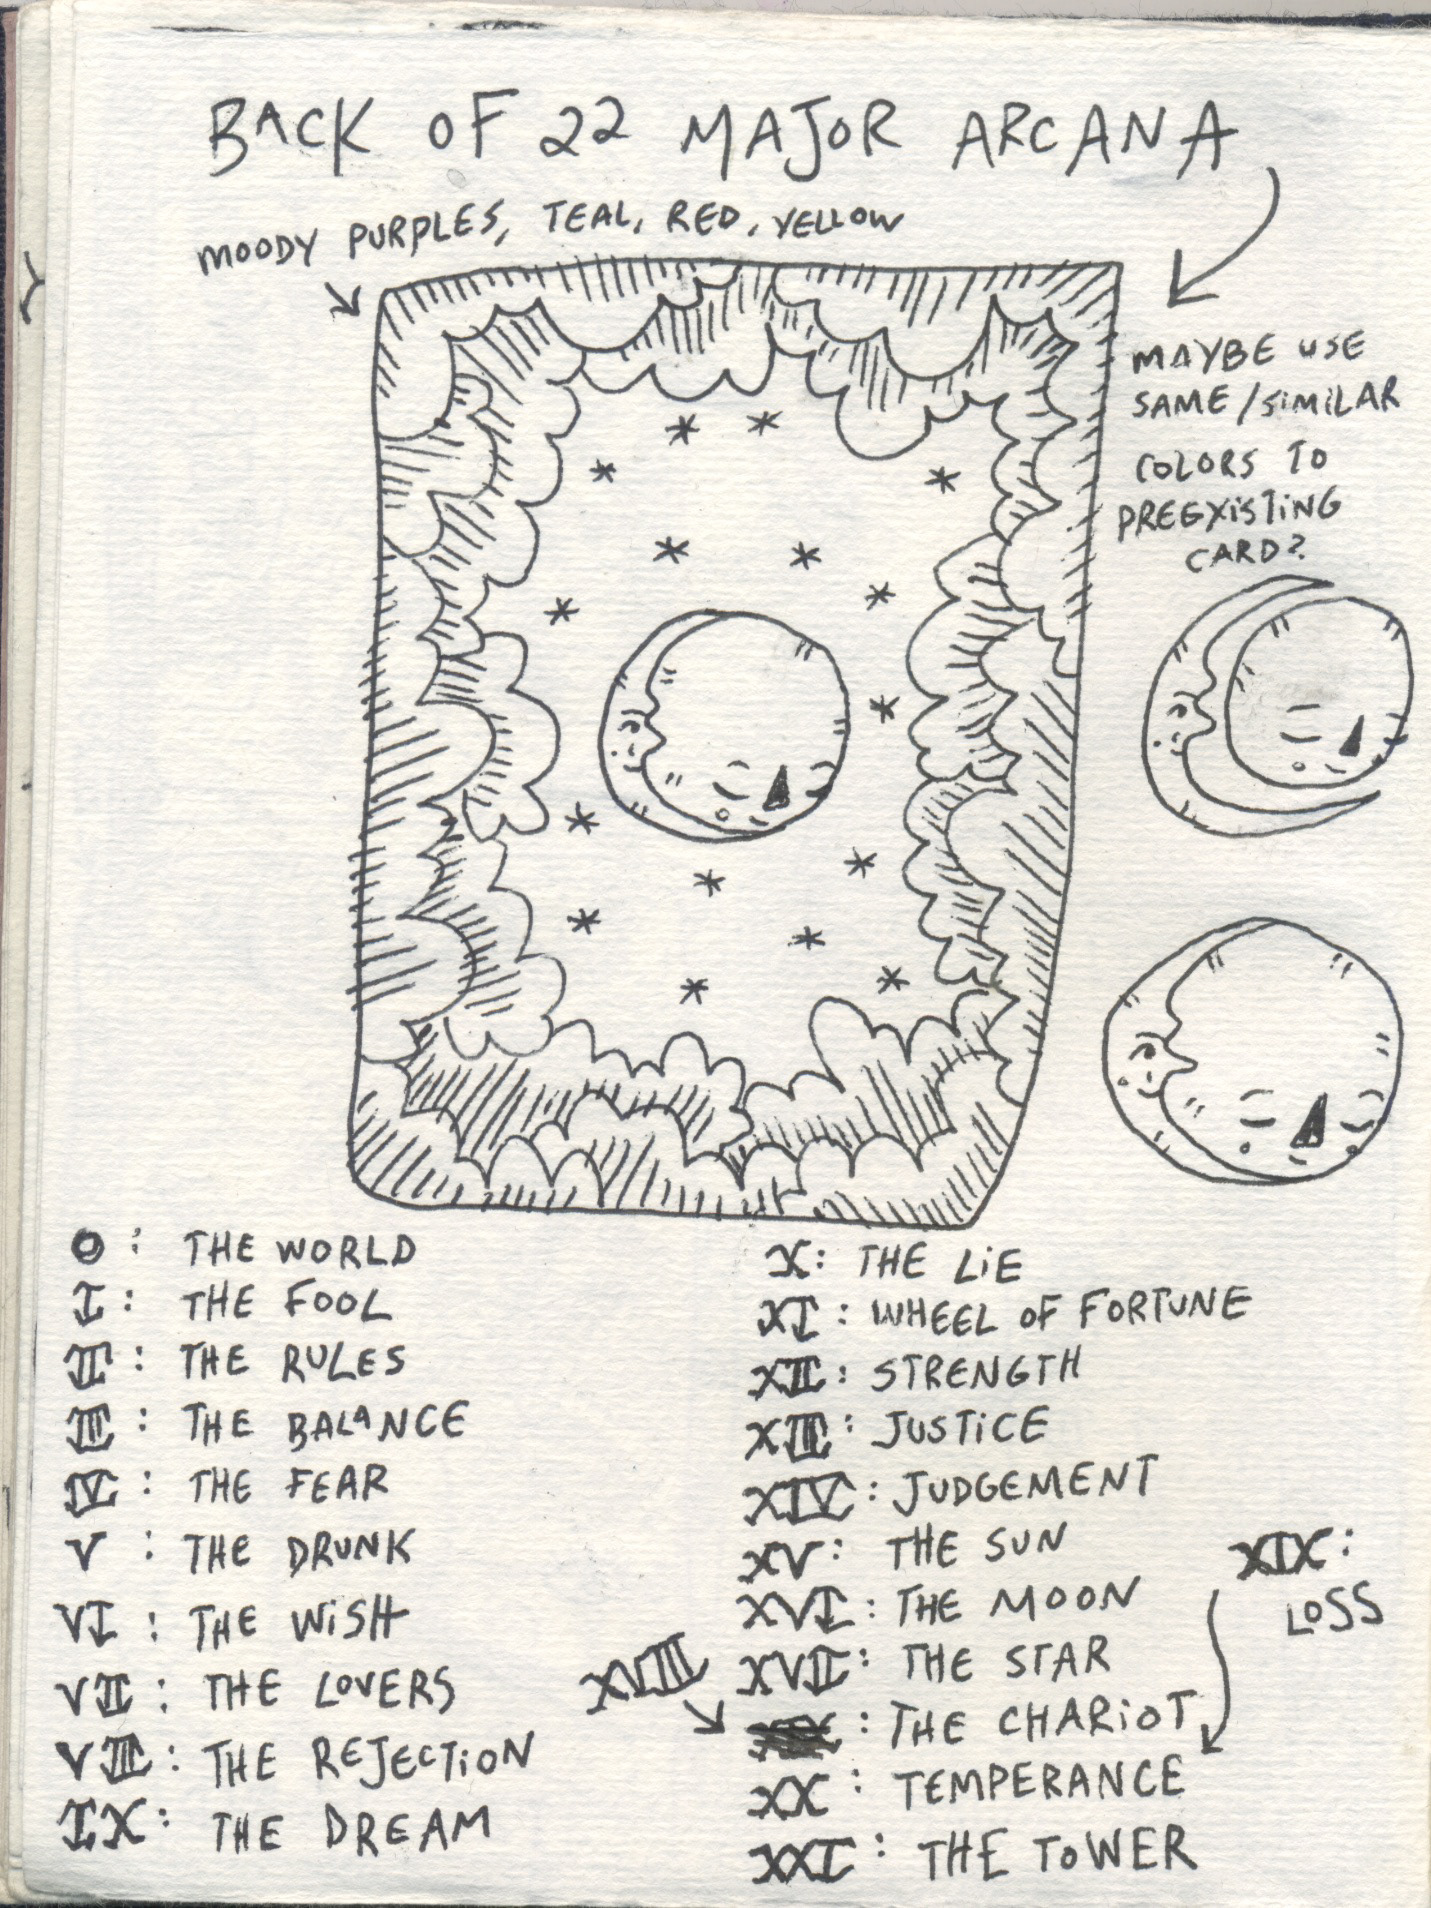 BACK OF 22 MAJOR ARCANA
MOODY PURPLES, TEAL, RED, YELLOW
MAYBE USE
SAME/SIMILAR
COLORS TO
PREEXISTING
CARD?
0: THE WORLD
I: THE FOOL
II: THE RULES
III: THE BALANCE
IV: THE FEAR
V: THE DRUNK
VI: THE WISH
VII: THE LOVERS
VIII: THE REJECTION
IX: THE DREAM
X: THE LIE
XI: WHEEL OF FORTUNE
XII: STRENGTH
XIII: JUSTICE
XIV: JUDGEMENT
XV: THE SUN
XVI: THE MOON
XVII: THE STAR
XVIII
: THE CHARIOT
XIX:
LOSS
XX: TEMPERANCE
XXI: THE TOWER